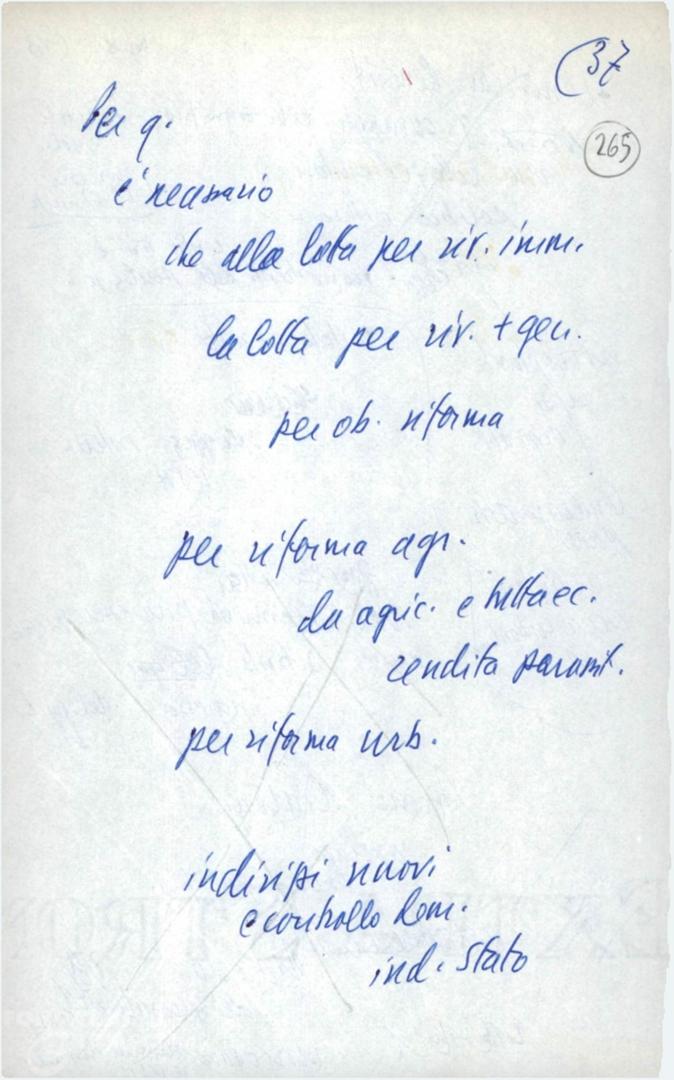 37
265
Per q.
è necessario
che alla lotta per riv. imm.
la lotta per riv. + gen.
per ob. riforma
per riforma agr.
da agric. e tutta ec.
rendita parassit.
per riforma urb.
indirizzi nuovi
e controllo dem.
ind. Stato